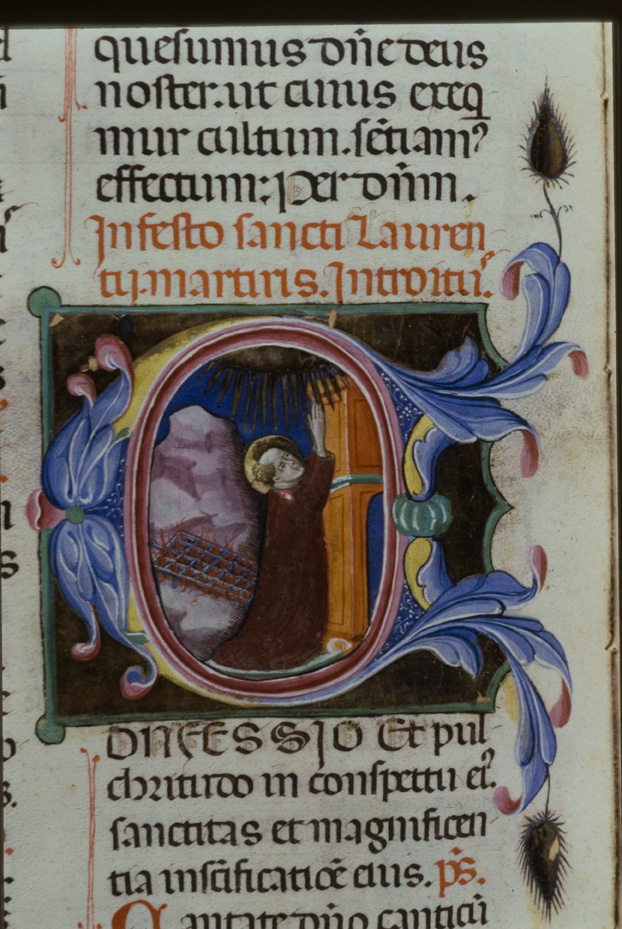 quesumus dn̄e deus
noster. ut cuius exeq̄
mur cultum. sētiam᾿
effectum: Per dn̄m.
In festo sancti Lauren
tij. martiris. Introitu᾿.
ONFESSIO Et pul
chritudo in conspettu ei᾿.
sanctitas et magnificen
tia in sc̄ificatiōe eius. p̄s.
Cantate dn̄o canticū